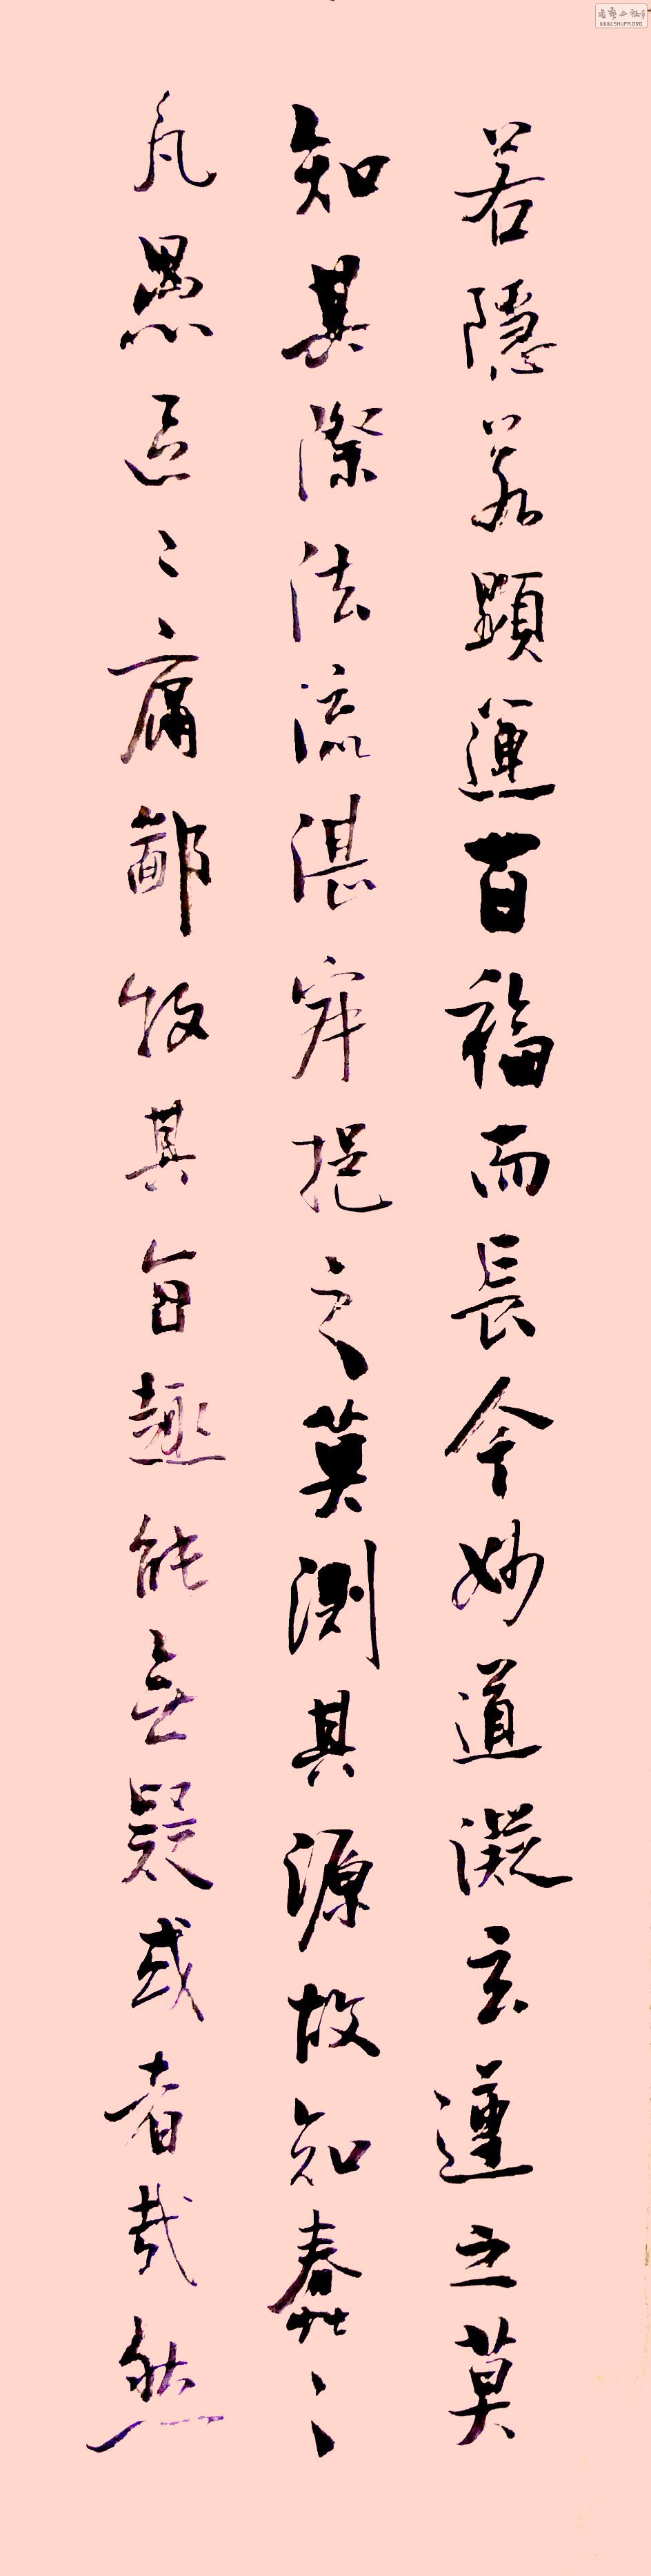 若隱若顯運百福而長今妙道凝玄遵之莫
知其際法流湛寂挹之莫測其源故知蠢〻
凡愚區〻庸鄙投其旨趣能無疑或者哉然
WWW.SHUFA.ORG